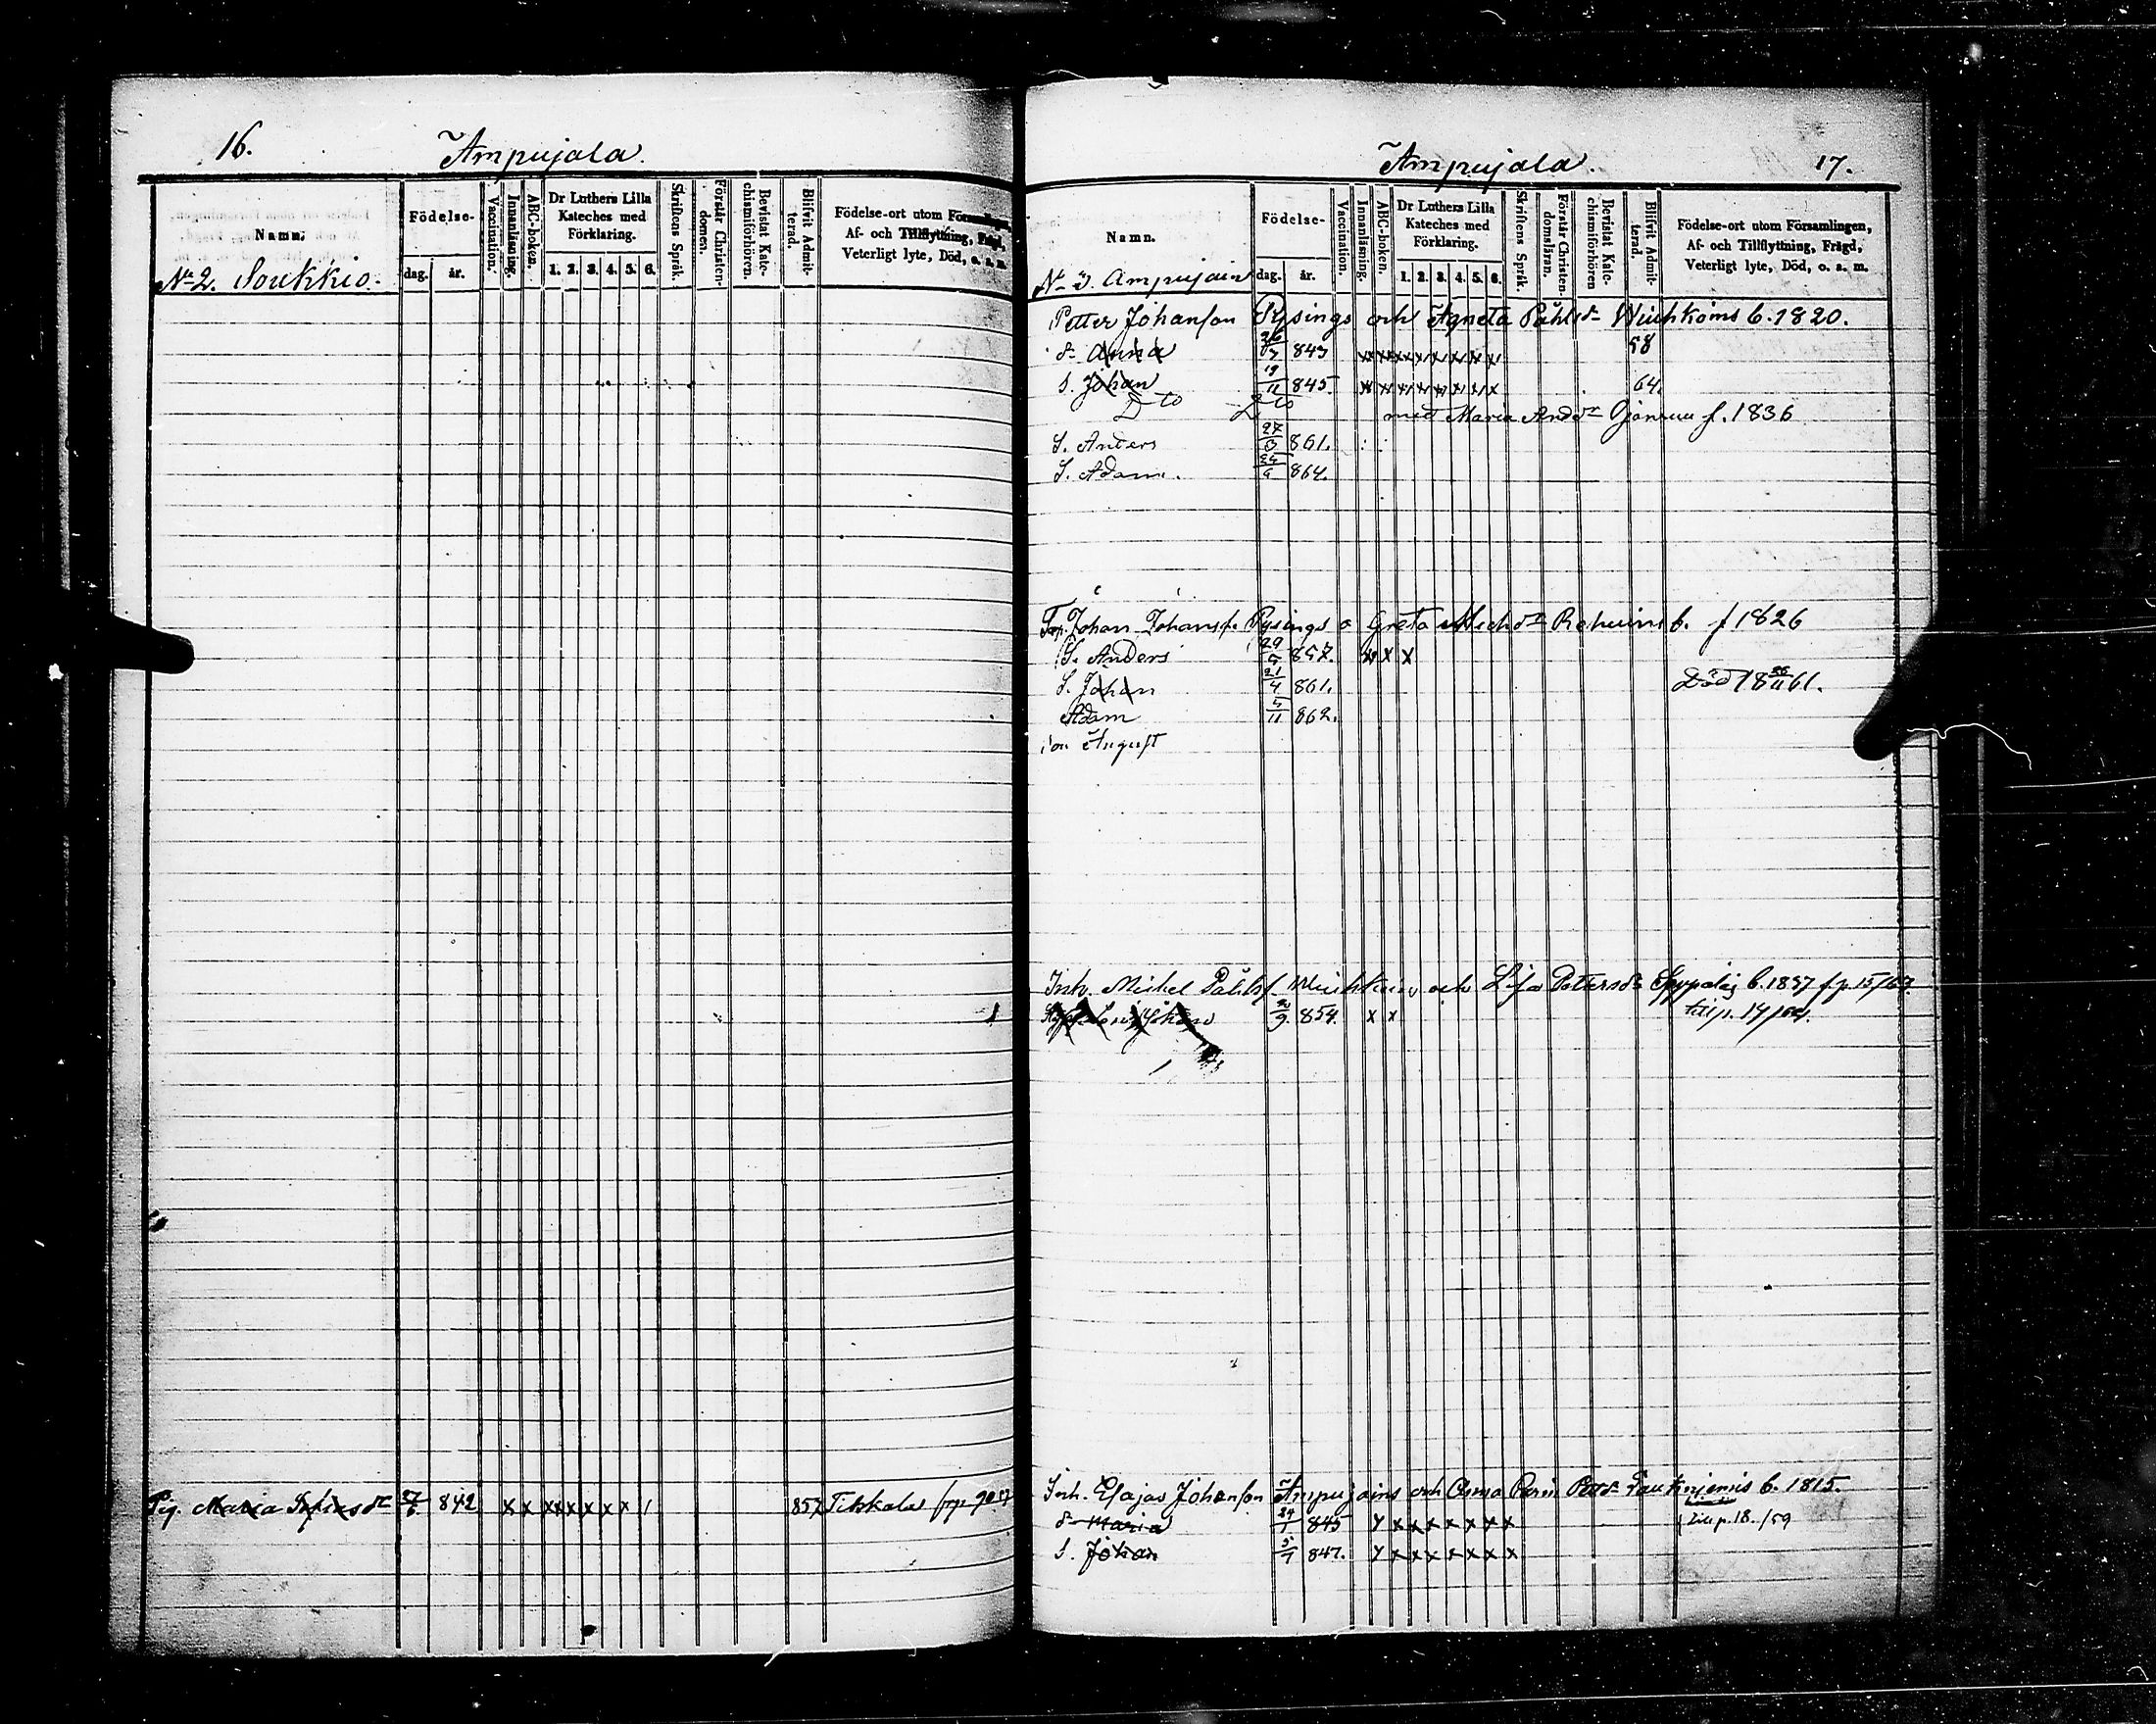 16.
Ampujala.
Namn.
Födelse-
dag. år.
Vaccination.
Innanläsning.
ABC-boken.
Dr Luthers Lilla
Kateches med
Förklaring.
1. 2. 3. 4. 5. 6.
Skriftens Språk.
Förstår Christen-
domen.
Bevistat Kate-
chismiförhören.
Blifvit Admit-
terad.
Födelse-ort utom Församlingen,
Af- och Tillflyttning, Frägd,
Veterligt lyte, Död, o. s. m.
No 2. Soukkio.
Pig. Maria 27/6 842 x x x x x x x x 857 Tikkala
Ampujala.
17.
Namn.
Födelse-
dag. år.
Vaccination.
Innanläsning.
ABC-boken.
Dr Luthers Lilla
Kateches med
Förklaring.
1. 2. 3. 4. 5. 6.
Skriftens Språk.
Förstår Christen-
domsläran.
Bevistat Kate-
chismiförhören
Blifvit Admit-
terad.
Födelse-ort utom Församlingen,
Af- och Tillflyttning, Frägd,
Veterligt lyte, Död, o. s. m.
No 3. Ampujain
Petter Johanson Pysings och Agneta Påhlsdr Wiuhkoins b. 1820.
dr Anna 26/7 843 x x x x x x x x 58
S. Johan 19/11 845. x x x x x x x x 64.
Dto Dto med Maria Andsdr f. 1836
S. Anders 27/3 861.
S. Adam. 24/6 864.
Johan Johanss. Pysings o Greta Michdr b. f 1826
S. Anders 29/5 857. x x x
S. Johan 21/4 861. Död 18 26/11 61.
Adam 5/11 862.
son August
Inh. Michel Påhlsf och Lisa Petersdr b. 1837 f. p. 15/63
9. 854. x x till p. 14/64.
Inh. Esajas Johanson Ampujains och Anna Petsdr b. 1815.
dr Maria 24/1 845 x x x x x x x x till p. 18. /59
S. Johan 5/7 847. x x x x x x x x